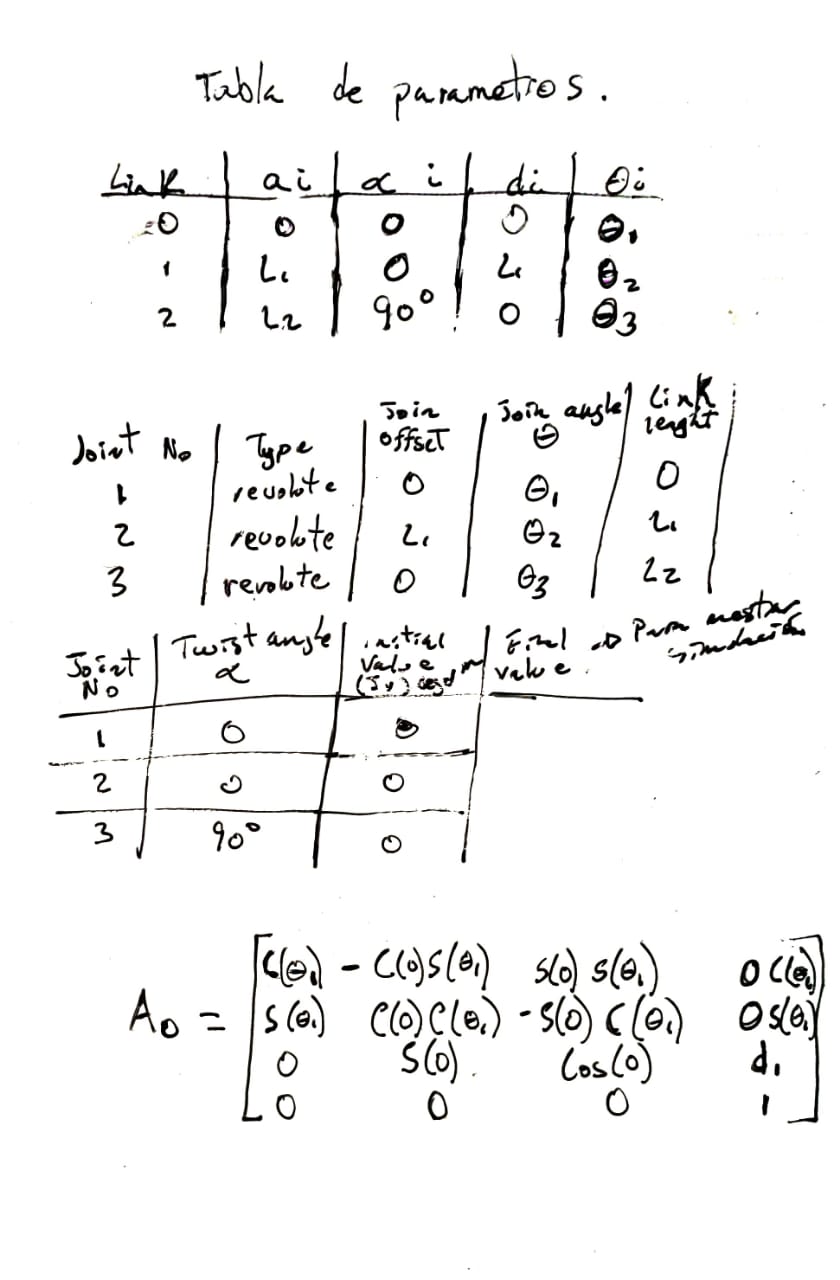 Tabla de parametros.
Link ai α i di θi
0 0 0 0 θ1
1 L1 0 L1 θ2
2 L2 90° 0 θ3
Joint No Type Join offset Join angle θ Link lenght
1 revolute 0 θ1 0
2 revolute L1 θ2 L1
3 revolute 0 θ3 L2
Joint No Twist angle α initial value (Jv) Final value. → Para mostrar simulación
1 0 0
2 0 0
3 90° 0
A0 = [ C(θ1) - C(0)S(θ1) S(0) S(θ1) 0 C(θ1)
S(θ1) C(0)C(θ1) - S(0) C(θ1) 0 S(θ1)
0 S(0). Cos(0) d1
0 0 0 1 ]